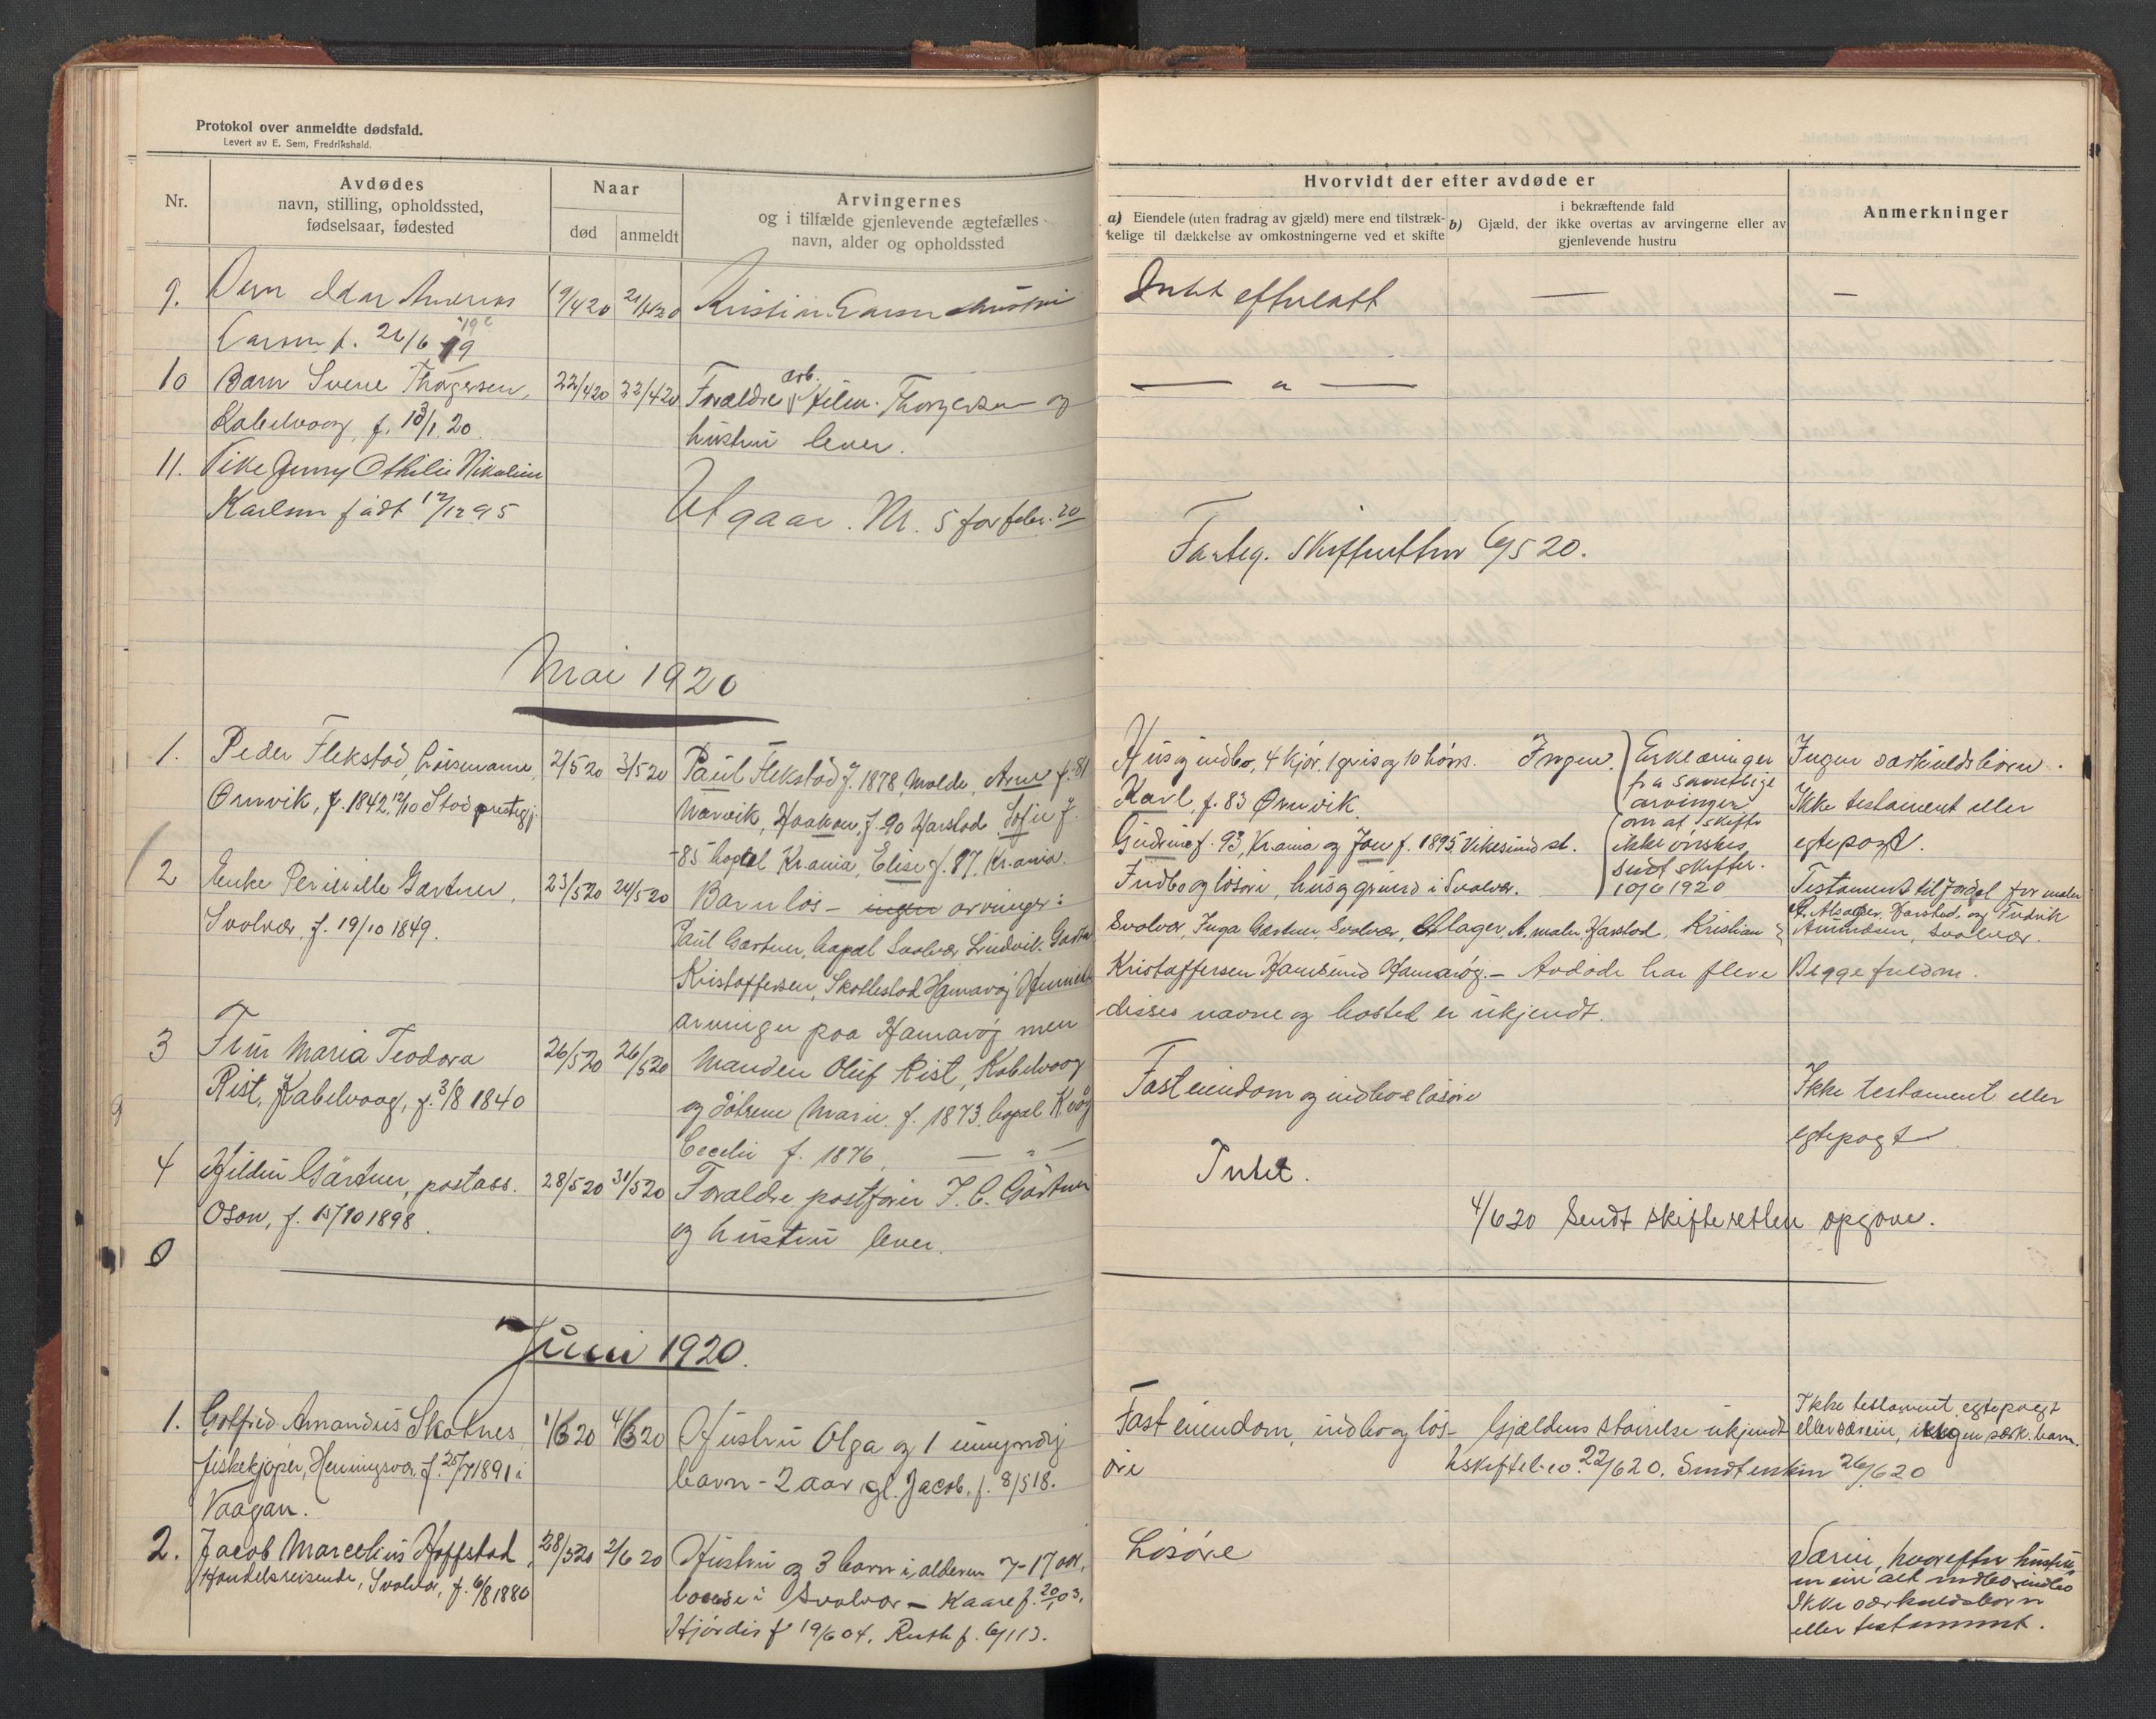 Protokol over anmeldte dødsfald.
Levert av E. Sem, Fredrikshald.
Nr.
Avdødes
navn, stilling, opholdssted,
fødselsaar, fødested
Naar
død
anmeldt
Arvingernes
og i tilfælde gjenlevende ægtefælles
navn, alder og opholdssted
Hvorvidt der efter avdøde er
a) Eiendele (uten fradrag av gjæld) mere end tilstræk-
kelige til dækkelse av omkostningerne ved et skifte
i bekræftende fald
b) Gjæld, der ikke overtas av arvingerne eller av
gjenlevende hustru
Anmerkninger
9.
19/4 20
Intet efterlatt — —
10 Barn Sverre Thorgersen, 22/4 20 22/4 20 Forældre arb. Thorgersen og
Kabelvaag, f. 13/1 20. hustru lever.
11. Pike Jenny Othilie Nikoline
Karlsen født 12/12 95
Utgaar. Nr. 5 for febr. 20
Skifteretten 6/5 20.
Mai 1920
1. Peder Flekstad, 2/5 20 3/5 20 Paul Flekstad f. 1878, Molde, Arne f. 81
Ørnvik, f. 1842 12/10 Stod prestegj.
Narvik, Haakon, f. 90 Harstad Sofie f.
85 bopæl Kr.ania, Elise f. 87, Kr.ania.
Hus og indbo, 4 kjør, 1 gris og 10 høns. Ingen.
Karl f. 83 Ørnvik.
Gudrun f. 93, Kr.ania og Jon f. 1895, Vikesund st.
Erklæringer
fra samtlige
arvinger
om at skifte
ikke ønskes
sendt skifter.
10/6 1920
Ingen særkuldsbørn.
Ikke testament eller
egtepagt.
2 Enke Pernille Gærtner, 23/5 20 24/5 20 Barnløs – ingen arvinger:
Svolvær, f. 19/10 1849.
Paul Gærtner, bopæl Svolvær Ludvik
Kristoffersen, Skottestad Hamarøy
arvinger paa Hamarøy men
Indbo og løsøre, hus og grund i Svolvær.
Svolvær, Inga Gærtner, Svolvær, A. maler Harstad, Kristian
Kristoffersen Hamsund Hamarøy. – Avdøde har flere
disses navne og bosted er ukjendt.
Testament til fordel for maler
Harstad, og Fredrik
Amundsen, Svolvær.
Begge fuldm.
3 Fru Maria Teodora 26/5 20 26/5 20 Manden Oluf Rist, Kabelvaag
Rist, Kabelvaag, f. 3/8 1840
og døtrene Marie f. 1873, bopæl
Cecelie f. 1876, — " —
Fast eiendom og indbo & løsøre
Ikke testament eller
egtepagt
4 Hildur Gärtner, postass. 28/5 20 31/5 20 Forældre postfører J. C. Gärtner
Osan, f. 15/10 1898.
og hustru lever.
Intet.
4/6 20 Sendt skifteretten opgave.
Juni 1920.
1. Gotfred Amandus Skotnes 1/6 20 4/6 20 Hustru Olga og 1 umyndig
fiskekjøper, Henningsvær, f. 25/7 1891 i
Vaagan.
barn – 2 aar gl. Jacob, f. 8/5 18.
Fast eiendom, indbo og løs-
øre
Gjældens størrelse ukjendt
22/6 20. Sendt enken 26/6 20
Ikke testament, egtepagt
eller særeie, ingen særk. barn.
2. Jacob Marcelius Hoffstad, 28/5 20 2/6 20 Hustru og 3 barn i alderen 7–17 aar,
Handelsreisende, Svolvær, f. 6/8 1880
boende i Svolvær – Kaare f. 20/1 03,
Hjørdis f 19/6 04, Ruth f. 6/1 13.
Løsøre
Særeie, hvorefter hustru
Ikke særkuldsbørn
eller testament.